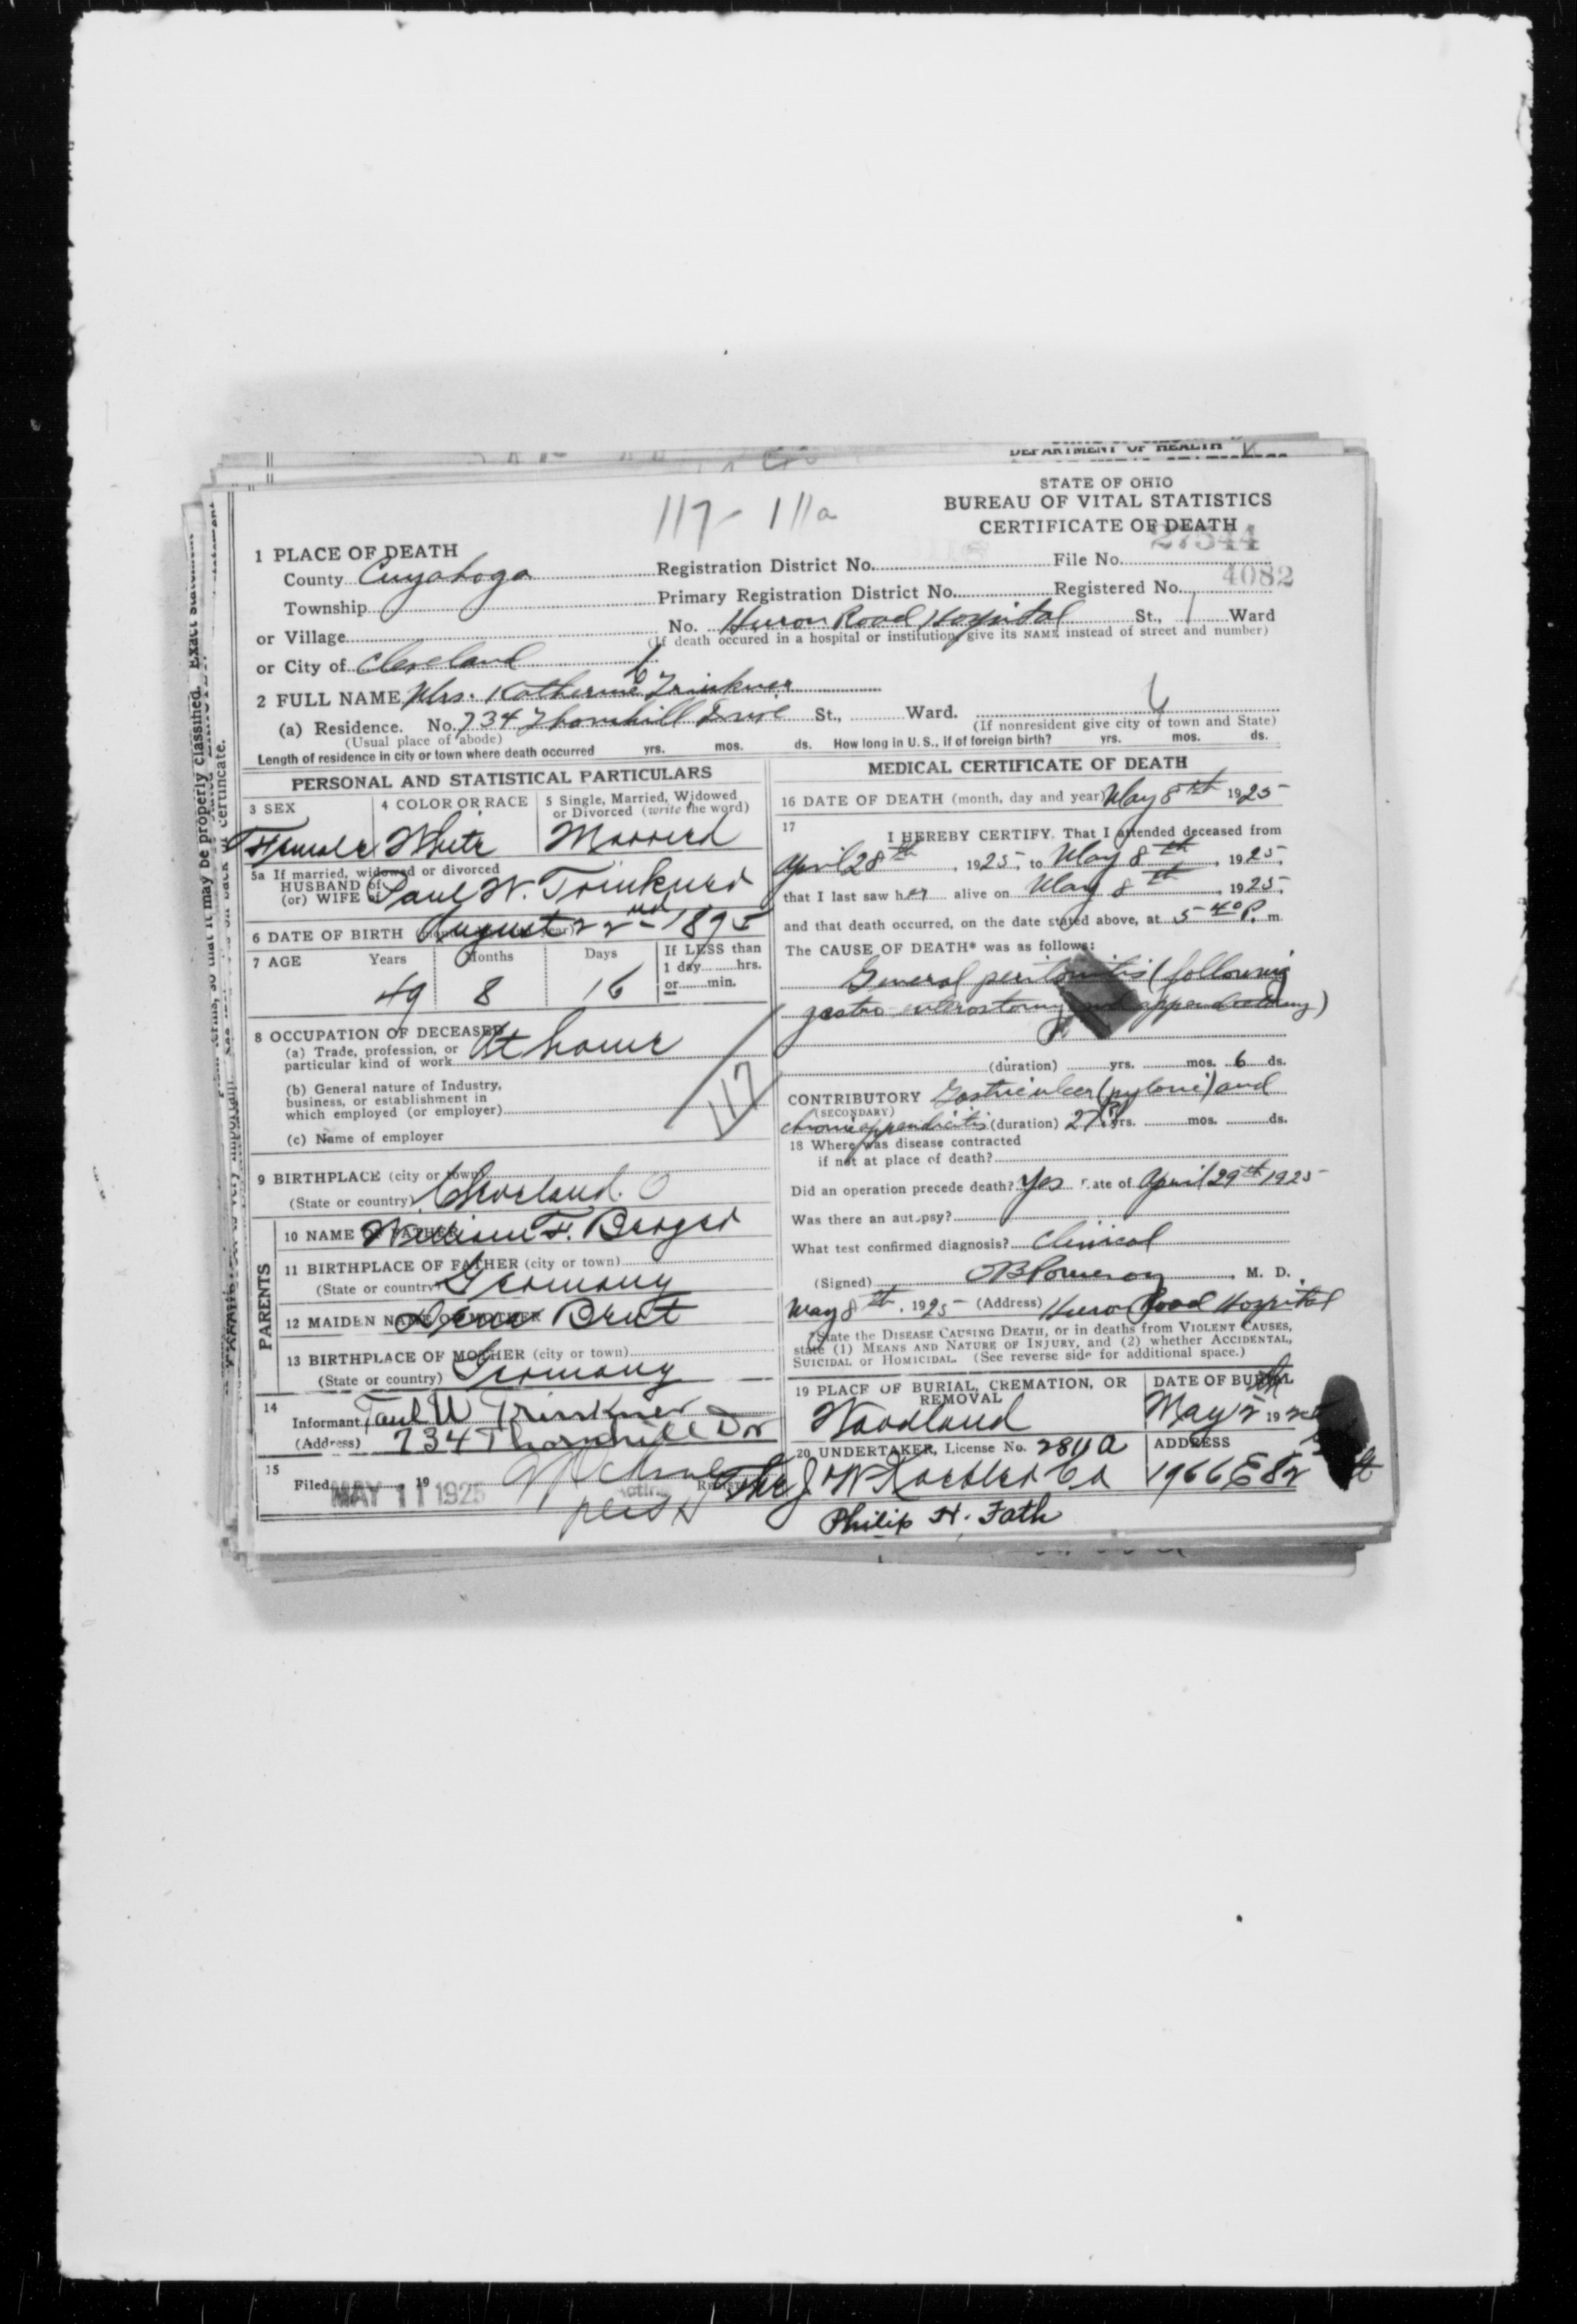 DEPARTMENT OF HEALTH
117-111a
STATE OF OHIO
BUREAU OF VITAL STATISTICS
CERTIFICATE OF DEATH
27544
1 PLACE OF DEATH
County Cuyahoga Registration District No. File No.
4082
Township Primary Registration District No. Registered No.
or Village No. Huron Road Hospital St., 1 Ward
(If death occured in a hospital or institution, give its NAME instead of street and number)
or City of Cleveland
2 FULL NAME Mrs. Katherine Trinkner
(a) Residence. No. 734 Thornhill Drive St., Ward.
(Usual place of abode) (If nonresident give city or town and State)
Length of residence in city or town where death occurred yrs. mos. ds. How long in U. S., if of foreign birth? yrs. mos. ds.
PERSONAL AND STATISTICAL PARTICULARS
3 SEX 4 COLOR OR RACE 5 Single, Married, Widowed or Divorced (write the word)
Female White Married
5a If married, widowed or divorced
HUSBAND of
(or) WIFE of Paul W. Trinkner
6 DATE OF BIRTH August 22nd 1875
7 AGE Years Months Days If LESS than
1 day hrs.
or min.
49 8 16
8 OCCUPATION OF DECEASED
(a) Trade, profession, or
particular kind of work At home
(b) General nature of Industry,
business, or establishment in
which employed (or employer)
117
(c) Name of employer
9 BIRTHPLACE (city or town)
(State or country) Cleveland. O
PARENTS
10 NAME OF FATHER William F. Berger
11 BIRTHPLACE OF FATHER (city or town)
(State or country) Germany
12 MAIDEN NAME OF MOTHER
13 BIRTHPLACE OF MOTHER (city or town)
(State or country) Germany
14
Informant Paul W Trinkner
(Address) 734 Thornhill Dr
15
Filed MAY 11 1925
MEDICAL CERTIFICATE OF DEATH
16 DATE OF DEATH (month, day and year) May 8th 1925
17
I HEREBY CERTIFY, That I attended deceased from
April 28th, 1925, to May 8th, 1925,
that I last saw her alive on May 8th, 1925,
and that death occurred, on the date stated above, at 5 40 P. m.
The CAUSE OF DEATH* was as follows:
General peritonitis (following
gastro enterostomy and appendectomy)
(duration) yrs. mos. 6 ds.
CONTRIBUTORY Gastric ulcer (pyloric) and
(SECONDARY)
chronic appendicitis (duration) 27 yrs. mos. ds.
18 Where was disease contracted
if not at place of death?
Did an operation precede death? Yes Date of April 29th 1925
Was there an autopsy?
What test confirmed diagnosis? Clinical
(Signed) OB Pomeroy, M. D.
May 8th, 1925 (Address) Huron Road Hospital
*State the DISEASE CAUSING DEATH, or in deaths from VIOLENT CAUSES,
state (1) MEANS AND NATURE OF INJURY, and (2) whether ACCIDENTAL,
SUICIDAL or HOMICIDAL. (See reverse side for additional space.)
19 PLACE OF BURIAL, CREMATION, OR REMOVAL DATE OF BURIAL
Woodland May 19
20 UNDERTAKER, License No. 2811 A ADDRESS
The J W Koebler Co 1966 E 82
Philip H. Fath